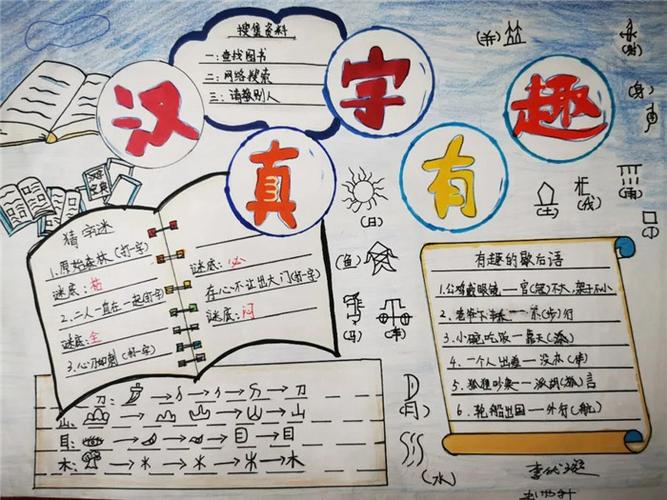 搜集资料
一：查找图书
二：网络搜索
三：请教别人
汉字真有趣
猜字谜
1.原始森林（打一字）
谜底：枯
2.二人一直在一起（打一字）
谜底：全
3.心刀如刺（打一字）
谜底：必
存心不让出大门（打一字）
谜底：闷
刀：→→→→刀
山：→→→→山
目：→→→目
木：→木→木→木→木
（日）
（鱼）
（马）
（车）
（月）
（水）
（土）
（戈）
（雨）
（身）
有趣的歇后语
1.公鸡戴眼镜——官（冠）不大，架子不小
（步）行
3.小碗吃饭——靠天（添）
4.一个人出
5.狐狸吵架——派胡（狐）言
6.轮船出国——外行（航）